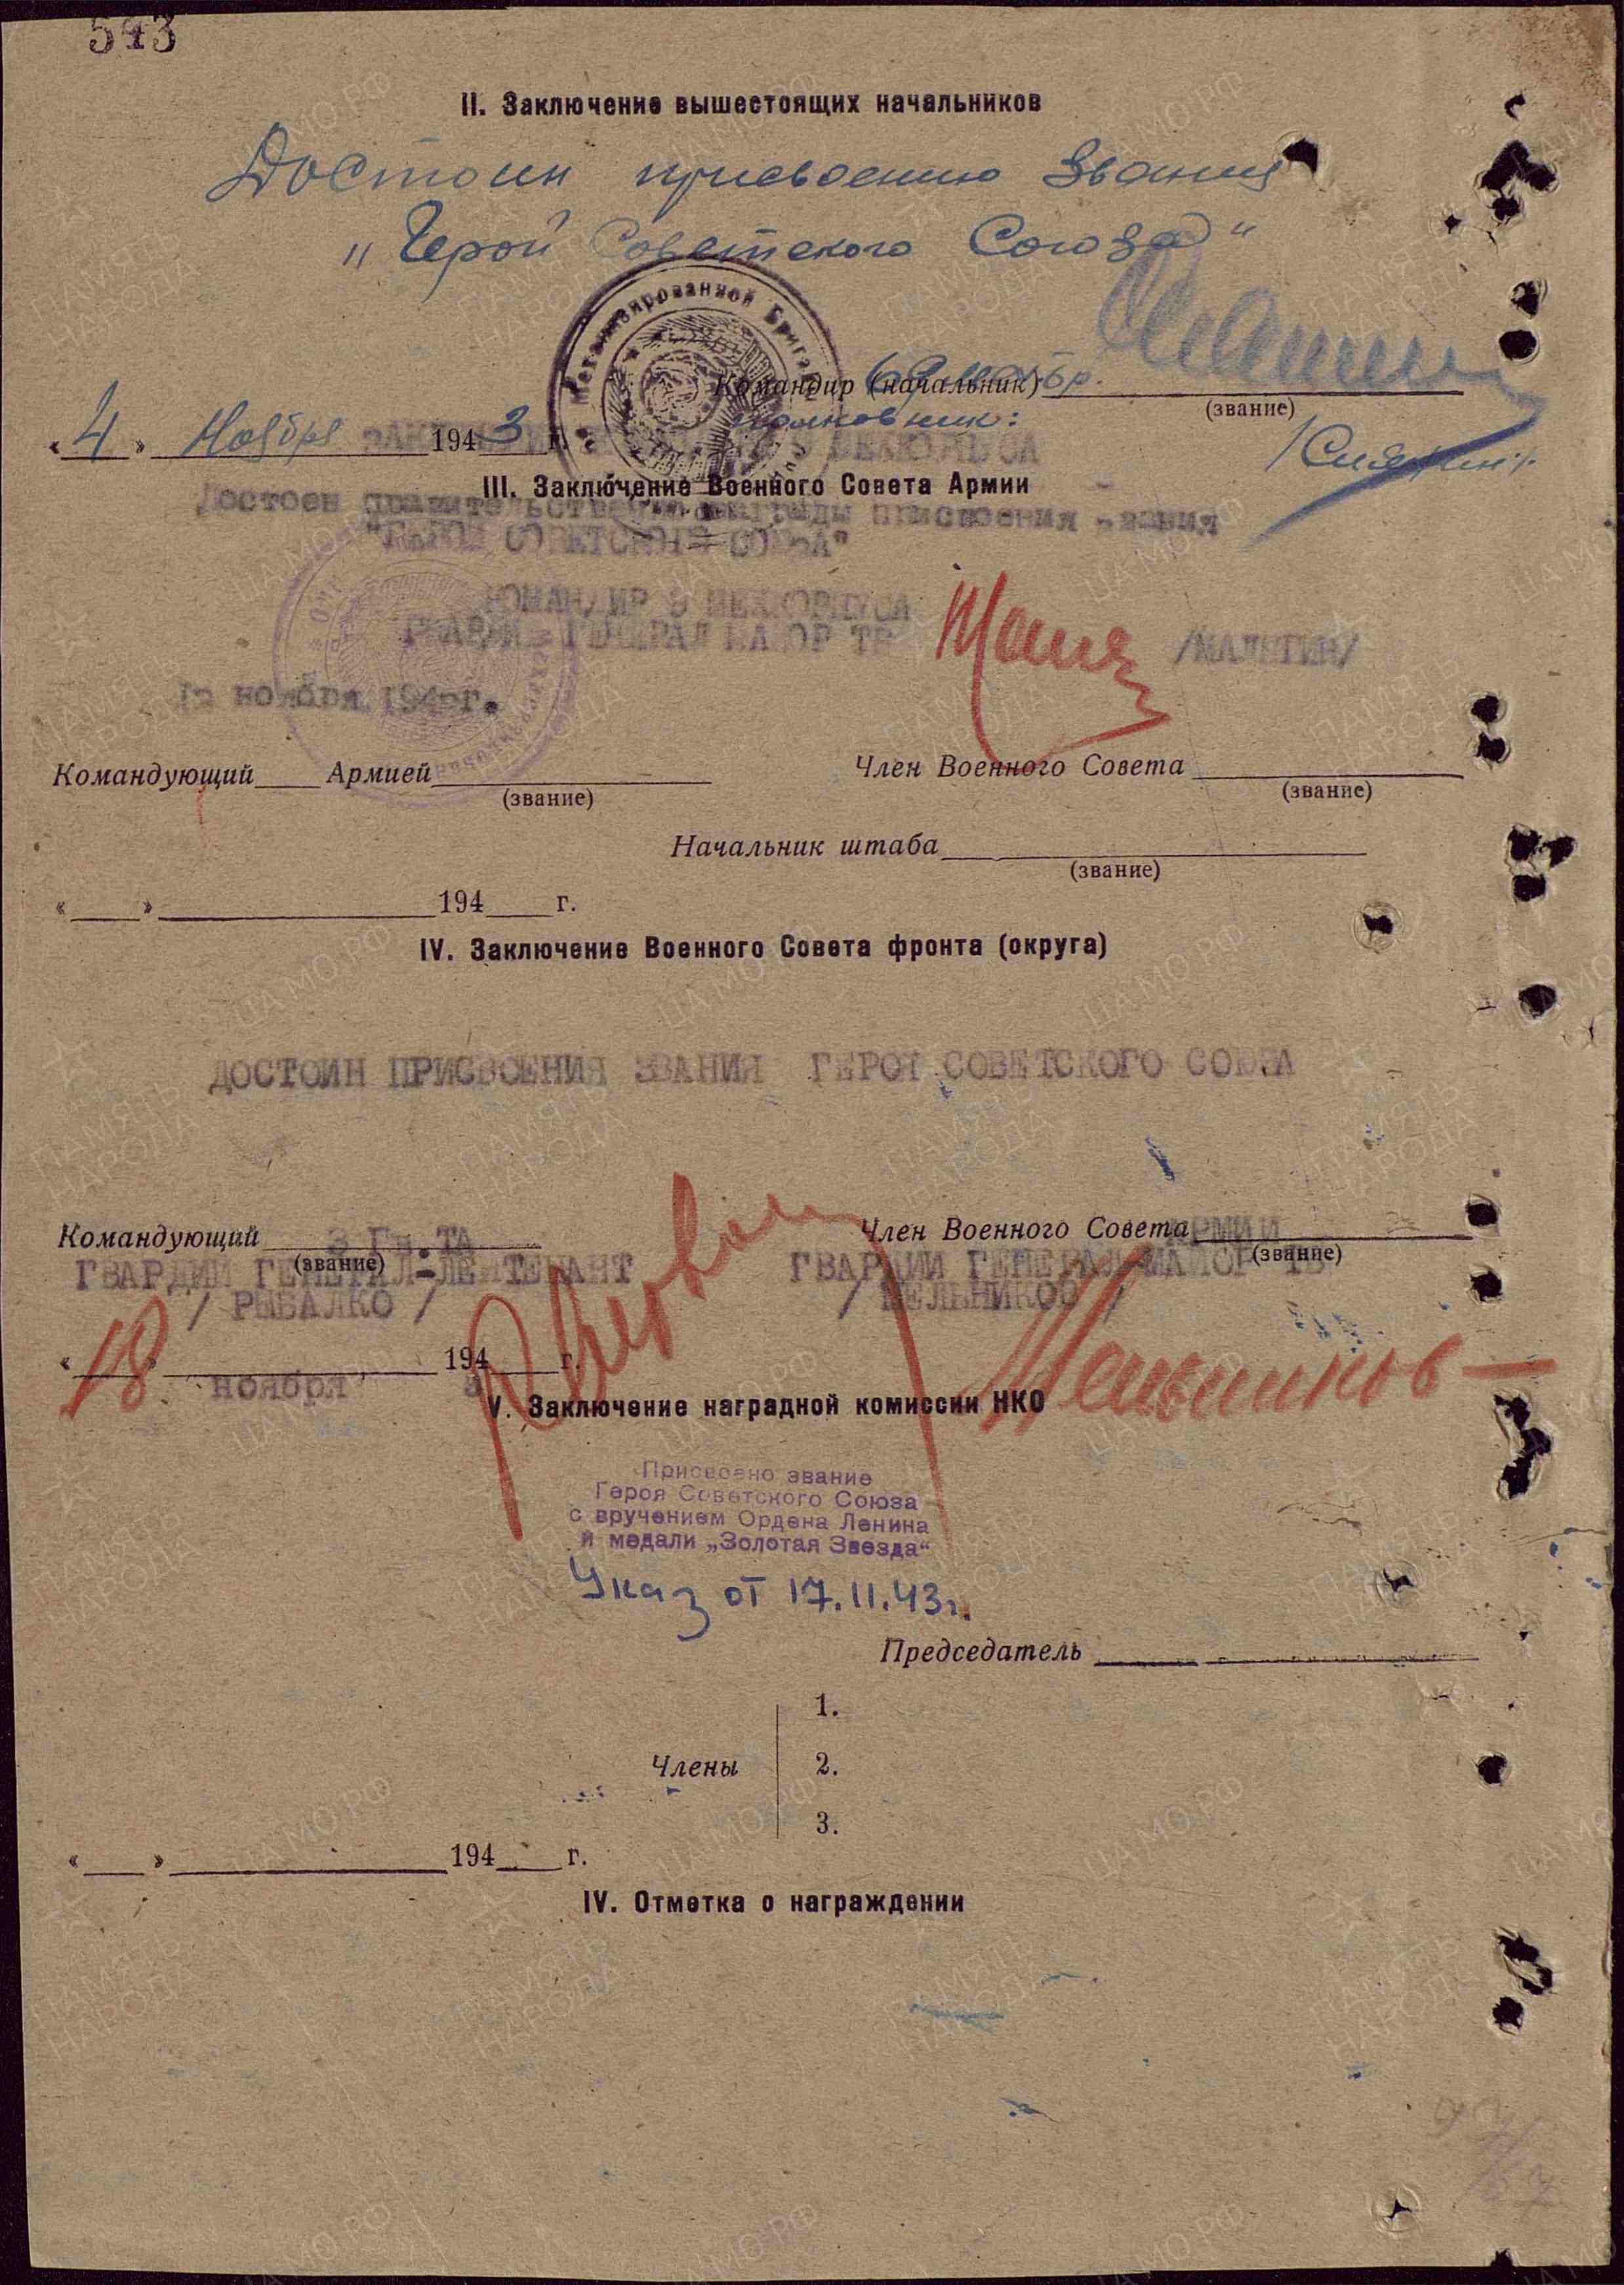 543
II. Заключение вышестоящих начальников
Достоин присвоению звания
"Герой Советского Союза"
Механизированной Бригады
Командир (начальник) 69 мехбр.
(звание)
полковник:
«4» Ноября 1943 г.
9 МЕХКОРПУСА
III. Заключение Военного Совета Армии
Достоен правительственной награды присвоения звания
"ГЕРОЙ СОВЕТСКОГО СОЮЗА"
КОМАНДИР 9 МЕХКОРПУСА
ГВАРДИИ ГЕНЕРАЛ МАЙОР ТВ
/МАЛЫГИН/
ноября 194 г.
Командующий Армией
(звание)
Член Военного Совета
(звание)
Начальник штаба
(звание)
« » 194 г.
IV. Заключение Военного Совета фронта (округа)
ДОСТОИН ПРИСВОЕНИЯ ЗВАНИЯ ГЕРОЯ СОВЕТСКОГО СОЮЗА
Командующий 3 Гв.ТА
(звание)
ГВАРДИИ ГЕНЕРАЛ-ЛЕЙТЕНАНТ
/ РЫБАЛКО /
Член Военного Совета АРМИИ
(звание)
ГВАРДИИ ГЕНЕРАЛ-МАЙОР ТВ
/ МЕЛЬНИКОВ /
Мельников
«18» ноября 1943 г.
V. Заключение наградной комиссии НКО
Присвоено звание
Героя Советского Союза
с вручением Ордена Ленина
и медали „Золотая Звезда"
Указ от 17.11.43г.
Председатель
1.
Члены 2.
3.
« » 194 г.
IV. Отметка о награждении
ПАМЯТЬ НАРОДА
ЦАМО.РФ